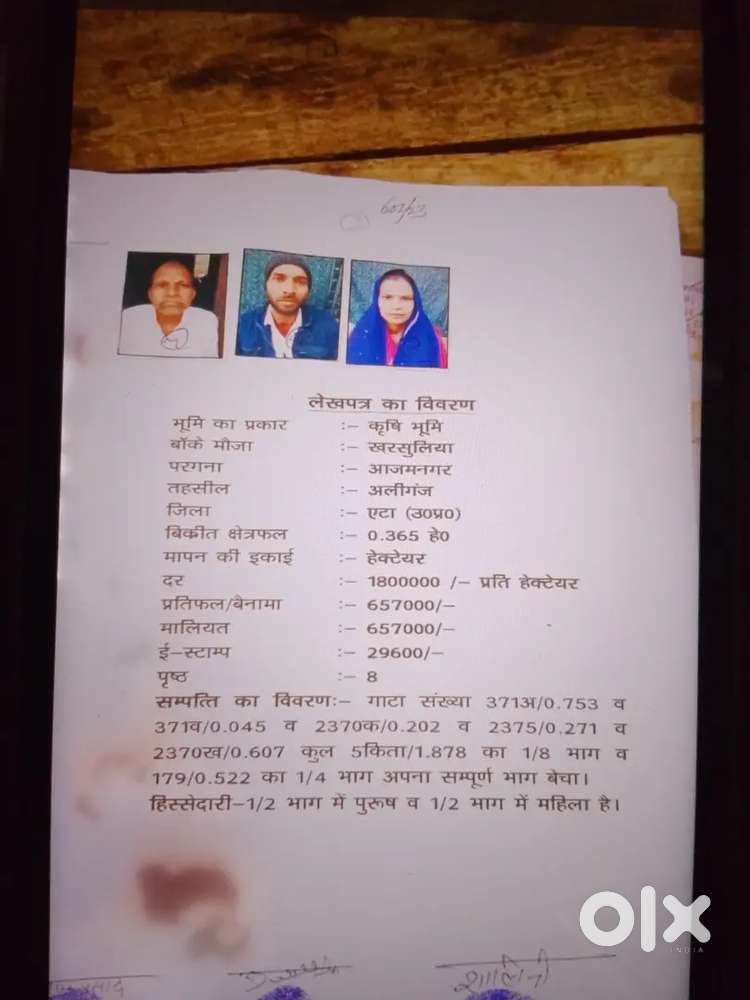 लेखपत्र का विवरण
भूमि का प्रकार :– कृषि भूमि
बॉके मौजा :– खरसुलिया
परगना :– आजमनगर
तहसील :– अलीगंज
जिला :– एटा (उ0प्र0)
बिक्रीत क्षेत्रफल :– 0.365 हे0
मापन की इकाई :– हेक्टेयर
दर :– 1800000 /– प्रति हेक्टेयर
प्रतिफल/बैनामा :– 657000/–
मालियत :– 657000/–
ई–स्टाम्प :– 29600/–
पृष्ठ :– 8
सम्पत्ति का विवरणः– गाटा संख्या 371अ/0.753 व
371व/0.045 व 2370क/0.202 व 2375/0.271 व
2370ख/0.607 कुल 5किता/1.878 का 1/8 भाग व
179/0.522 का 1/4 भाग अपना सम्पूर्ण भाग बेचा।
हिस्सेदारी–1/2 भाग में पुरूष व 1/2 भाग में महिला है।
olx
INDIA
शालिनी